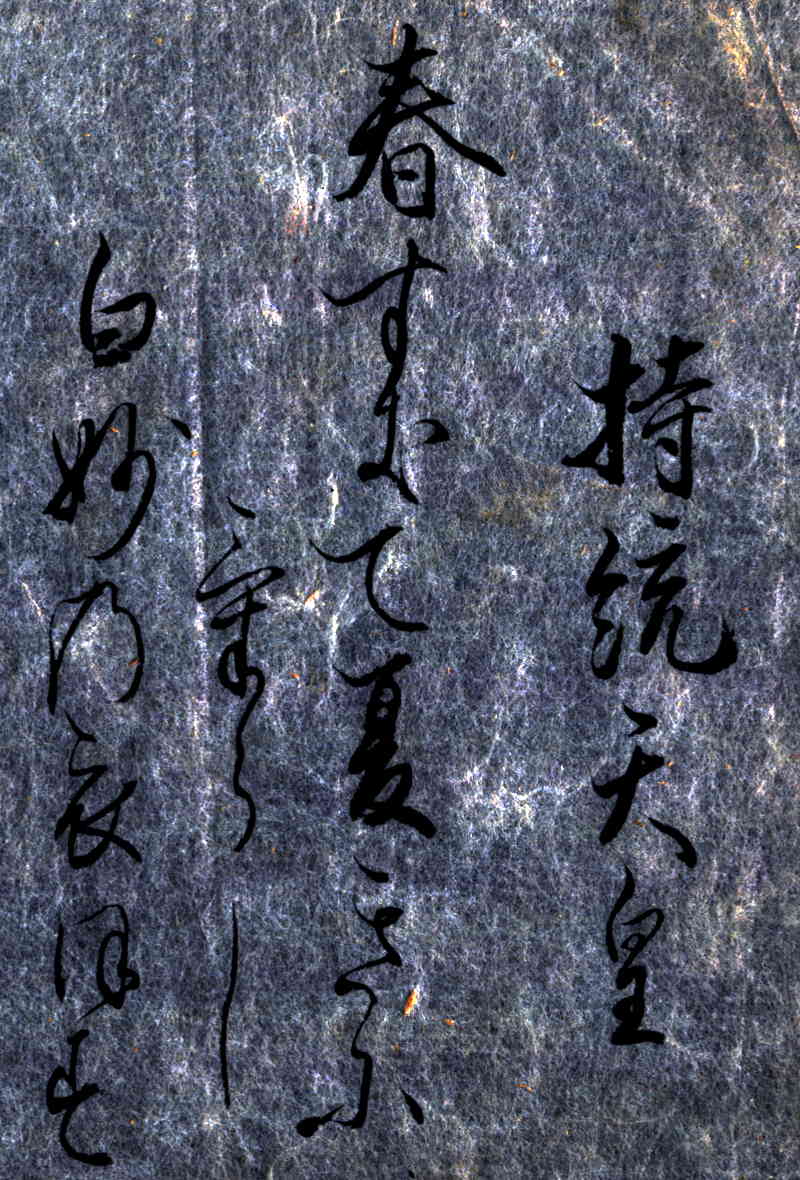 持統天皇
春すきて夏きに
けらし
白妙の衣ほす